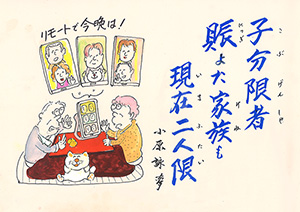 子分限者
こぶげんしゃ
賑よた家族も
現在二人限
いまふたい
小原
リモートで今晩は!